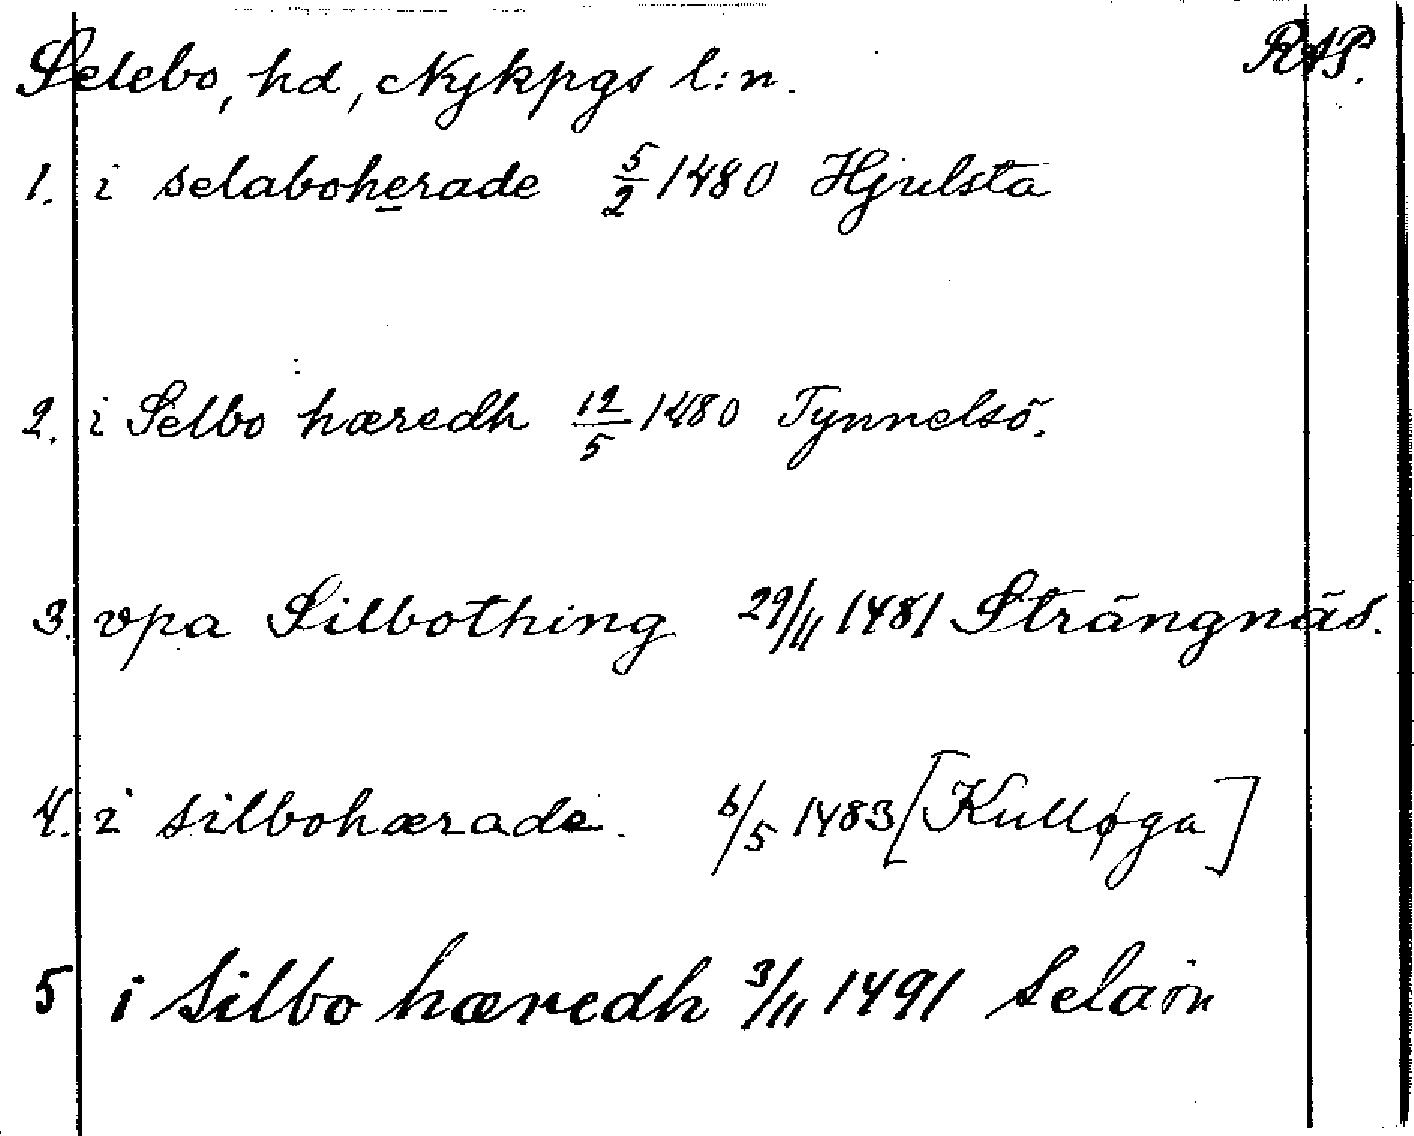 Selebo, hd, Nykpgs l:n. RAP.
1. i selaboherade 5/2 1480 Hjulsta
2. i Selbo hæredh 12/5 1480 Tynnelsö.
3. vpa Silbothing 29/11 1481 Strängnäs.
4. i silbohærade. 6/5 1483 [Kulløga]
5 i Silbo hæredh 3/11 1491 Selaön